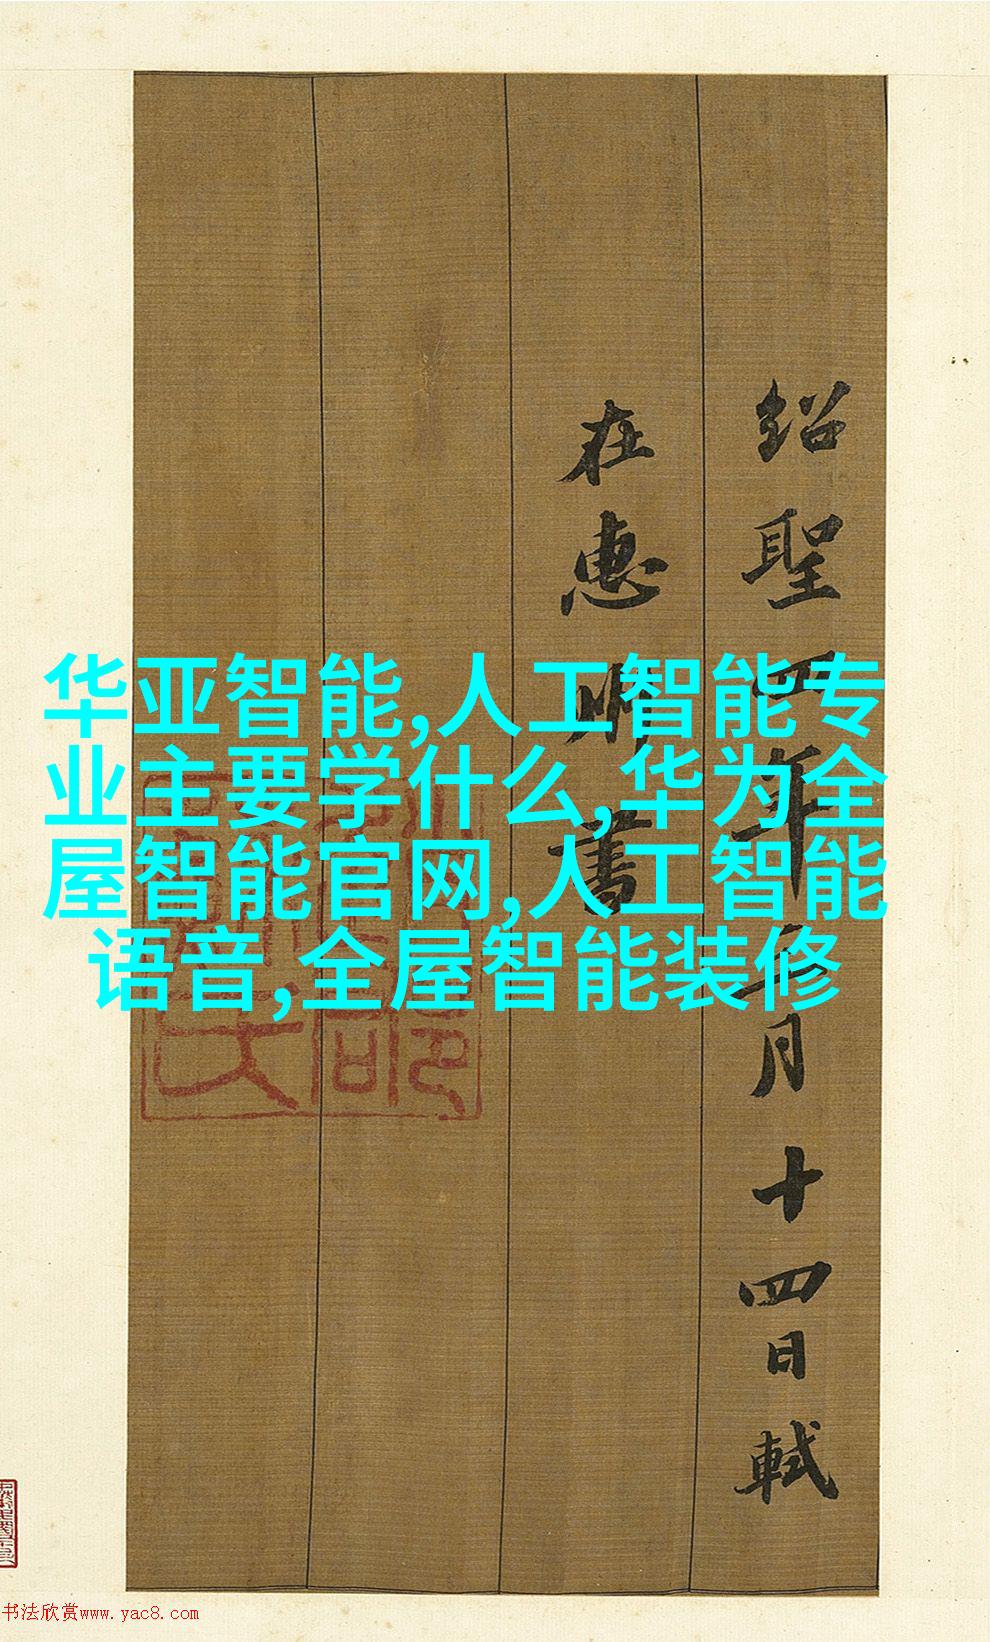 华亚智能,人工智能专
业主要学什么,华为全
屋智能官网,人工智能
语音,全屋智能装修
绍聖四年二月十四日軾
在惠州書
书法欣赏www.yac8.com